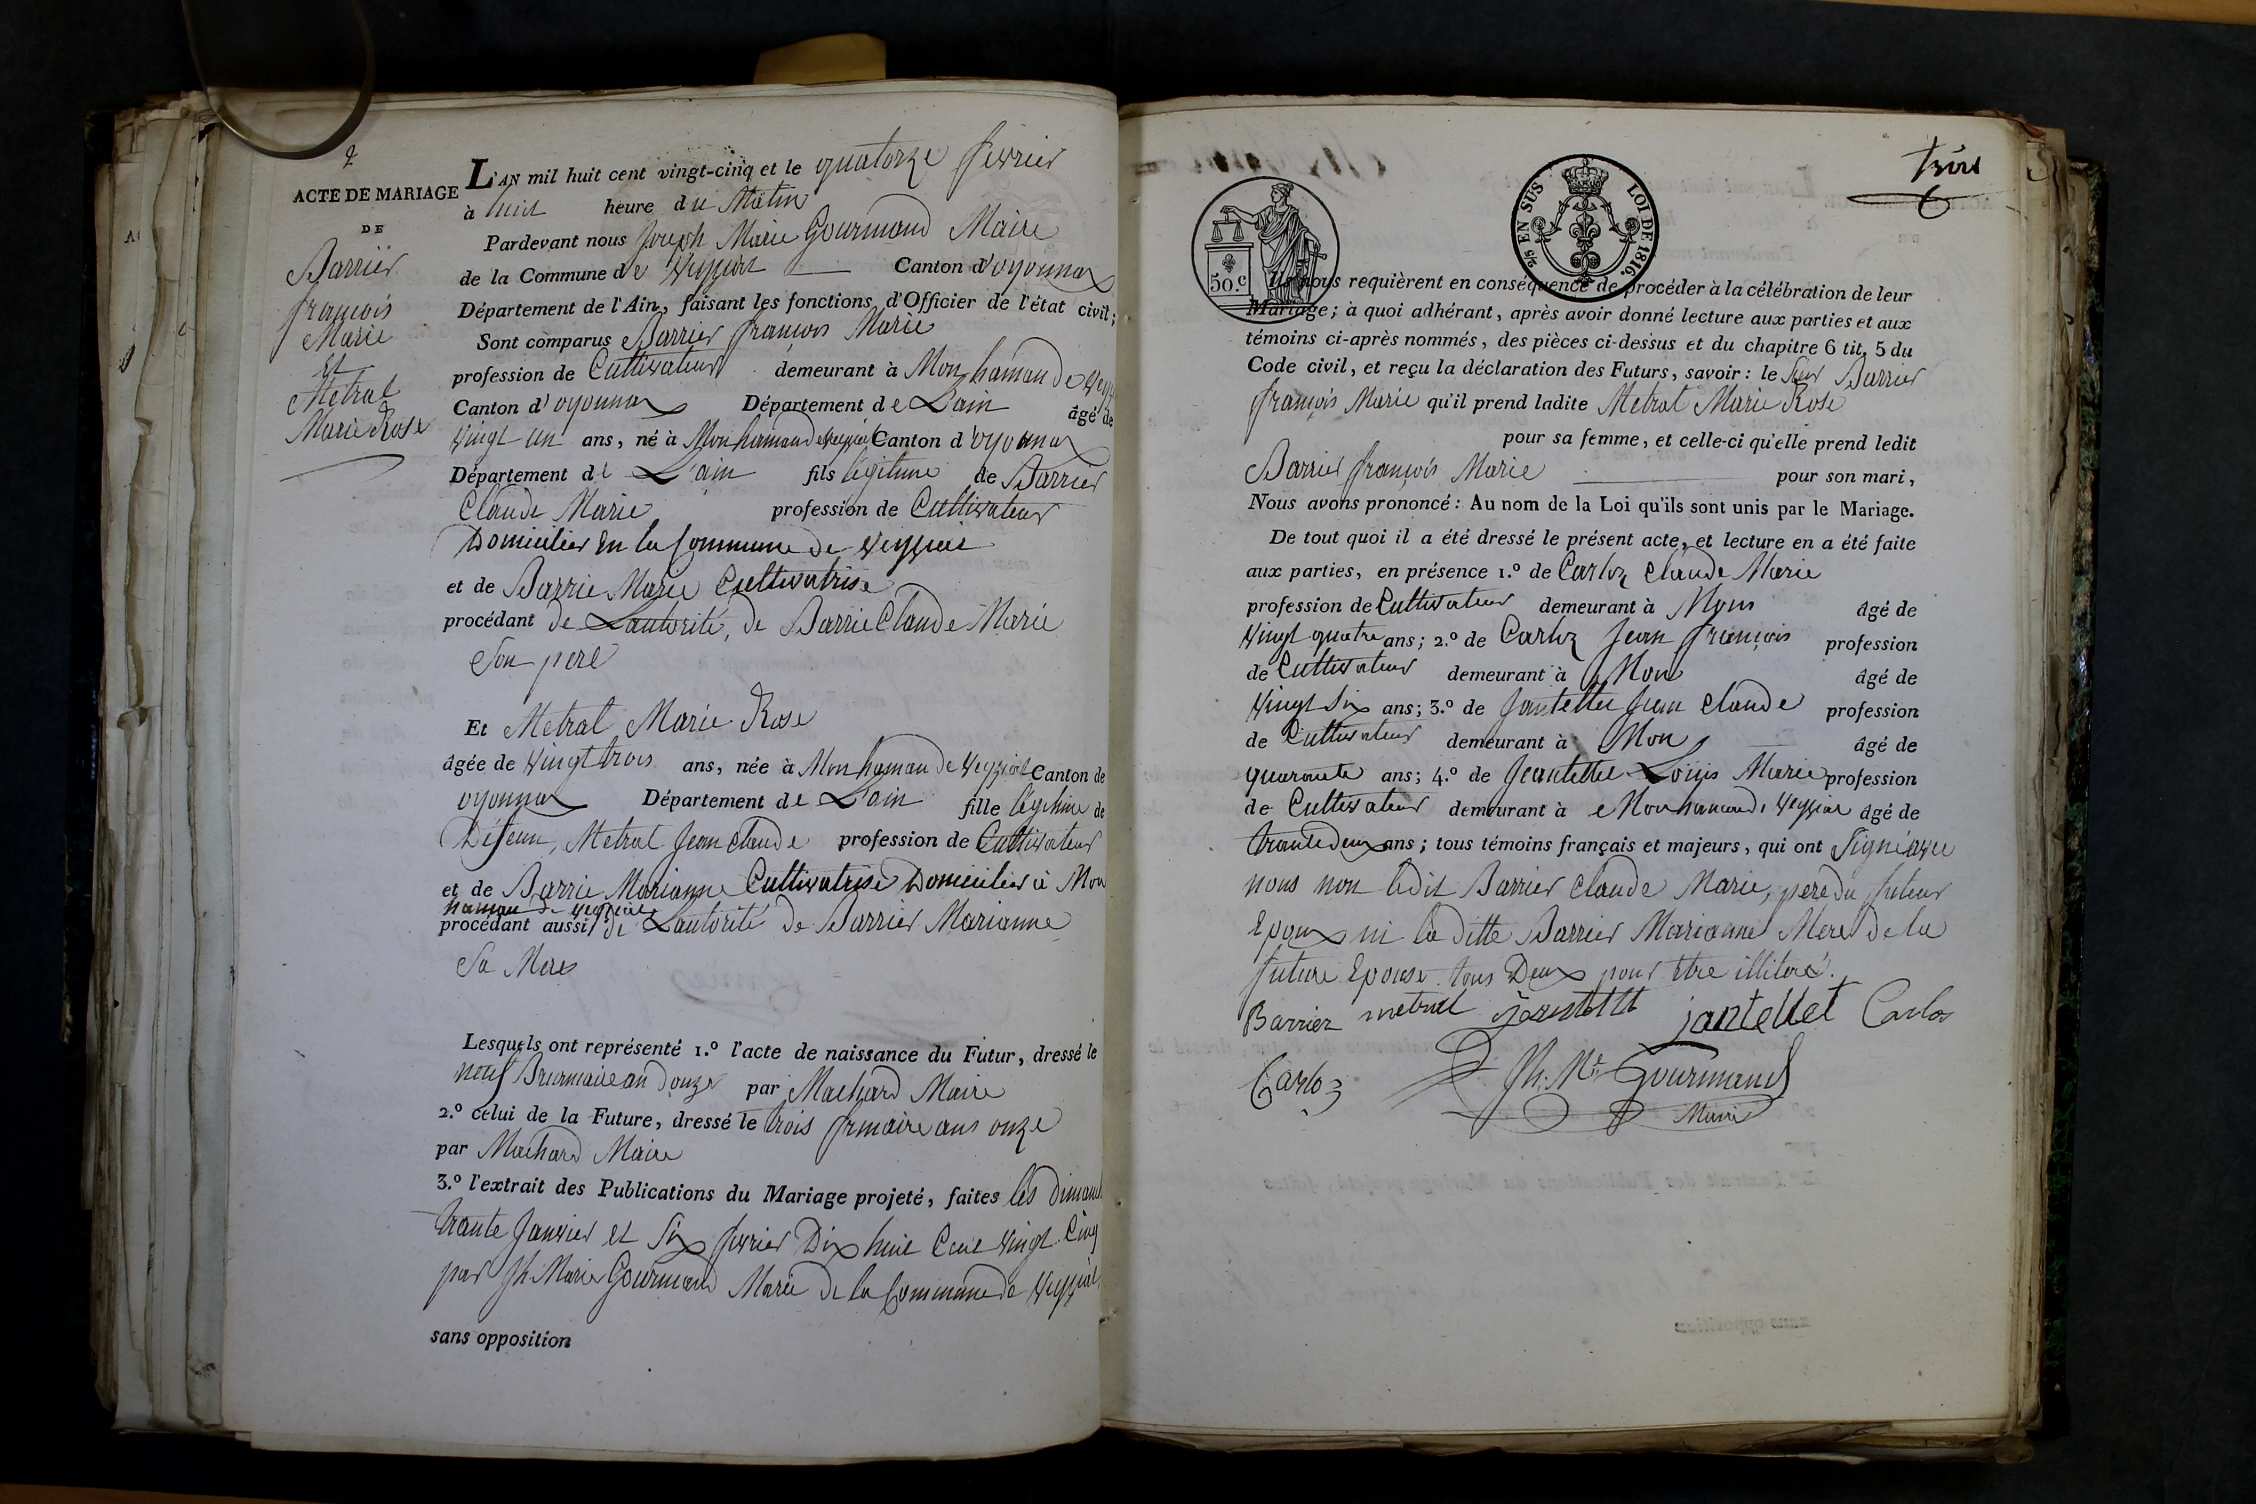 2
ACTE DE MARIAGE
DE
Barrier
françois
Marie
Et
Metral
Marie Rose
L'AN mil huit cent vingt-cinq et le quatorze fevrier
à huit heure du Matin
Pardevant nous Joseph Marie Gourmand Maire
de la Commune de Veyziat Canton d'oyonnax
Département de l'Ain, faisant les fonctions d'Officier de l'état civil;
Sont comparus Barrier françois Marie
profession de Cultivateur demeurant à Mon hamau de
Canton d'oyonnax Département de L'ain âgé de
Vingt un ans, né à Mon hamau de Veyziat Canton d'oyonnax
Département de L'ain fils légitime de Barrier
Claude Marie profession de Cultivateur
Domicilier En la Commune de Veyziat
et de Barrie Marie Cultivatrise
procédant de Lautorité, de Barrie Claude Marie
Son pere
Et Metral Marie Rose
âgée de Vingt trois ans, née à Mon hamau de Veyziat Canton de
oyonnax Département de L'ain fille légitime de
Défeun, Metral Jean Claude profession de Cultivateur
et de Barrie Marianne Cultivatrise Domicilier à Mon
hamau de Veyziat
procédant aussi de Lautorité de Barrier Marianne
Sa Mere
Lesquels ont représenté 1.º l'acte de naissance du Futur, dressé le
neuf Brumaire an douze par Machard Maire
2.º celui de la Future, dressé le trois frimaire ans onze
par Machard Maire
3.º l'extrait des Publications du Mariage projeté, faites les dimanch
trante Janvier et Six fevrier Dix huit Cent Vingt Cinq
par Jh Marie Gourmand Marie de la Commune de Veyziat
sans opposition
trois
50.c
25 EN SUS LOI DE 1816.
Ils nous requièrent en conséquence de procéder à la célébration de leur
Mariage; à quoi adhérant, après avoir donné lecture aux parties et aux
témoins ci-après nommés, des pièces ci-dessus et du chapitre 6 tit. 5 du
Code civil, et reçu la déclaration des Futurs, savoir: le Sieur Barrier
françois Marie qu'il prend ladite Metral Marie Rose
pour sa femme, et celle-ci qu'elle prend ledit
Barrier françois Marie pour son mari,
Nous avons prononcé: Au nom de la Loi qu'ils sont unis par le Mariage.
De tout quoi il a été dressé le présent acte, et lecture en a été faite
aux parties, en présence 1.º de Carloz Claude Marie
profession de Cultivateur demeurant à Mons âgé de
Vingt quatre ans; 2.º de Carloz Jean françois profession
de Cultivateur demeurant à Mon âgé de
Vingt Six ans; 3.º de Jantellet Jean Claude profession
de Cultivateur demeurant à Mon âgé de
quarante ans; 4.º de Jeantellet Loüis Marie profession
de Cultivateur demeurant à Mon hamau de Veyziat âgé de
trante deux ans; tous témoins français et majeurs, qui ont Signé avec
nous non ledit Barrier Claude Marie, pere du futeur
Epoux ni la ditte Barrier Marianne Mere de la
future Epouse tous Deux pour être illitoré.
Barrier metral jantellet Carlos
Carloz Jh. Mie Gourmand
Maire